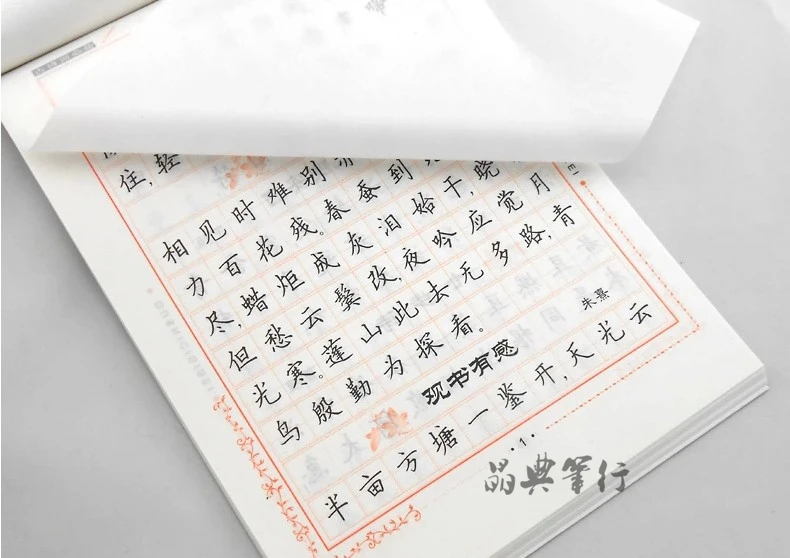 住,轻
相见时难别
力百花残。春蚕到
尽,蜡炬成灰泪始干,晓
但愁云鬓改,夜吟应觉月
光寒。蓬山此去无多路,青
鸟殷勤为探看。
观书有感
朱熹
半亩方塘一鉴开,天光云
·1·
晶典筆行